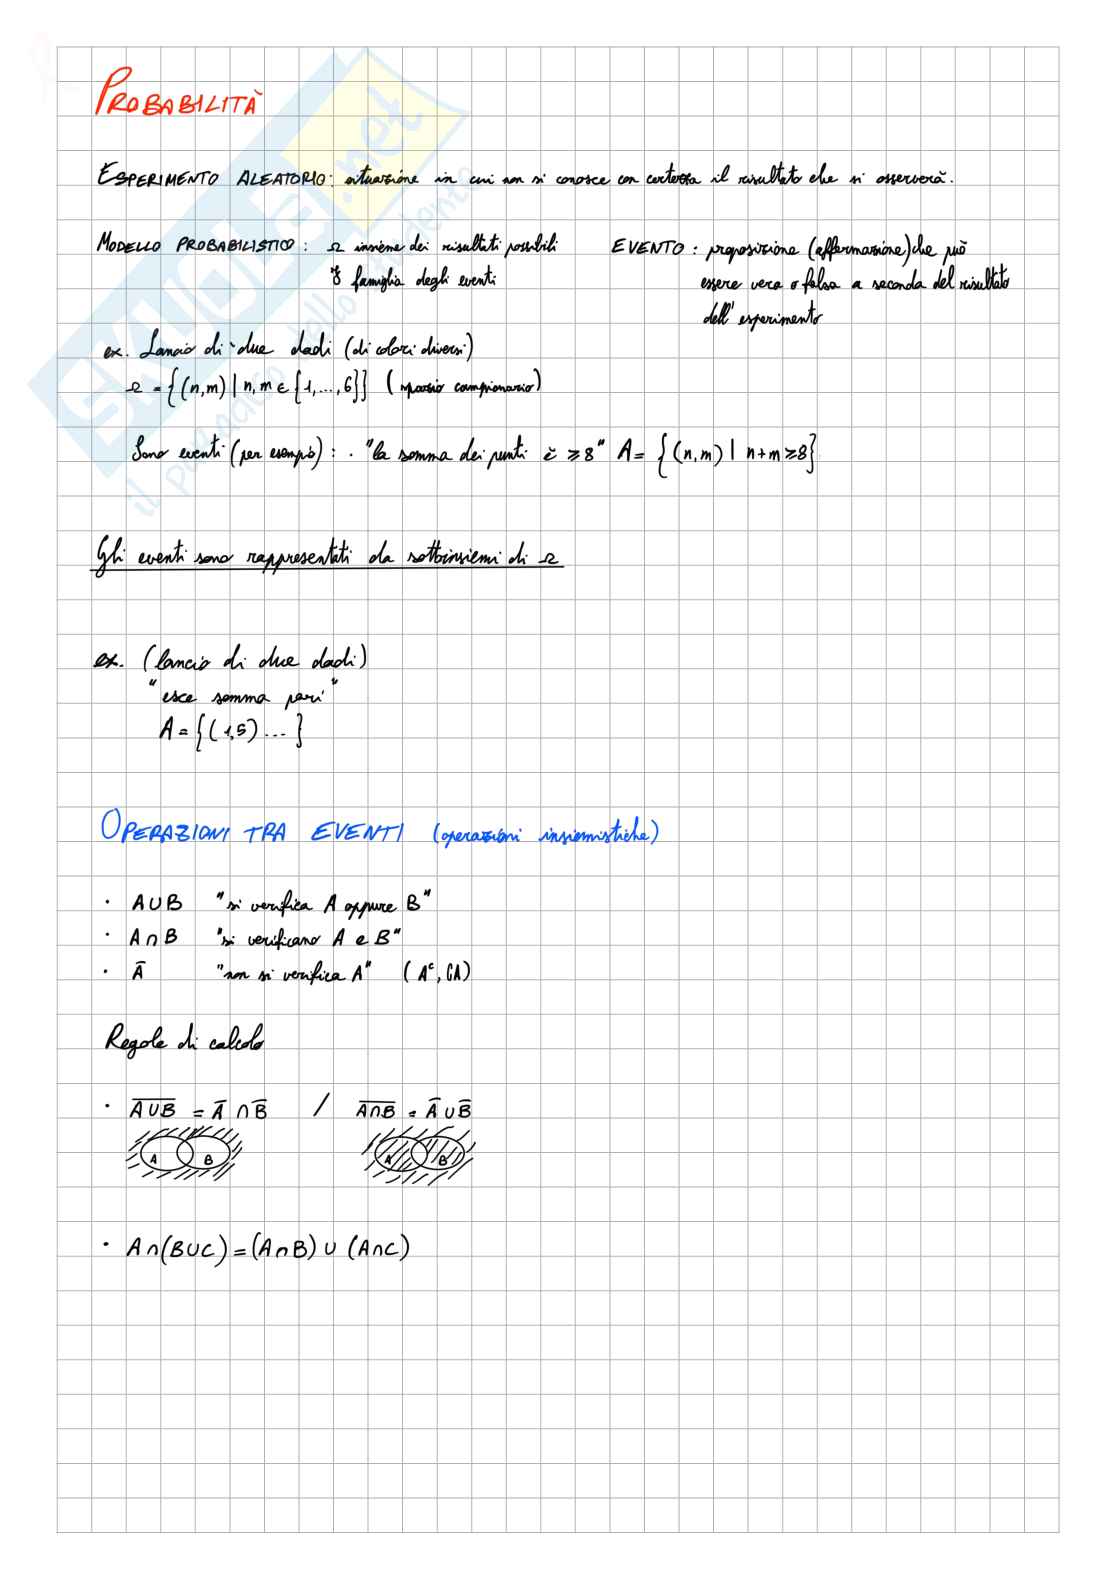 PROBABILITÀ
ESPERIMENTO ALEATORIO: situazione in cui non si conosce con certezza il risultato che si osserverà.
MODELLO PROBABILISTICO: Ω insieme dei risultati possibili
ℱ famiglia degli eventi
EVENTO: proposizione (affermazione) che può
essere vera o falsa a seconda del risultato
dell'esperimento
ex. Lancio di due dadi (di colori diversi)
Ω = {(n,m) | n,m ∈ {1,...,6}} (spazio campionario)
Sono eventi (per esempio): · "la somma dei punti è ≥8" A = {(n,m) | n+m ≥8}
Gli eventi sono rappresentati da sottoinsiemi di Ω
ex. (lancio di due dadi)
"esce somma pari"
A = {(1,5) ... }
OPERAZIONI TRA EVENTI (operazioni insiemistiche)
· A∪B "si verifica A oppure B"
· A∩B "si verificano A e B"
· Ā "non si verifica A" (Aᶜ, ∁A)
Regole di calcolo
· A̅∪̅B̅ = Ā ∩ B̄ / A̅∩̅B̅ = Ā ∪ B̄
A B A B
· A∩(B∪C) = (A∩B) ∪ (A∩C)
SKUOLA.net
il paradiso dello studente